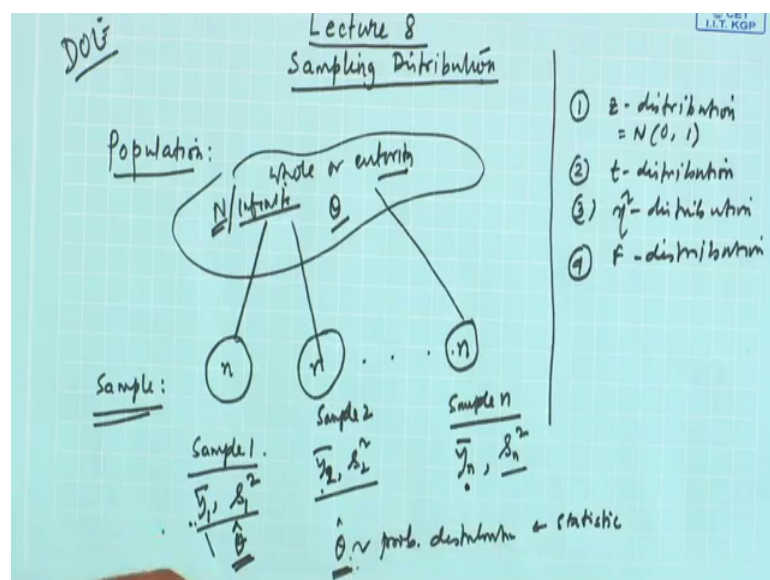 © CET
I.I.T. KGP
DOE
Lecture 8
Sampling Distribution
Population:
whole or entirity
N/Infinite θ
n n . . . . n
Sample:
Sample 1.
ȳ₁, s₁²
θ̂
Sample 2
ȳ₂, s₂²
Sample n
ȳₙ, sₙ²
θ̂ ~ prob. distribution ← statistic
① z - distribution
= N(0, 1)
② t - distribution
③ χ² - distribution
④ F - distribution